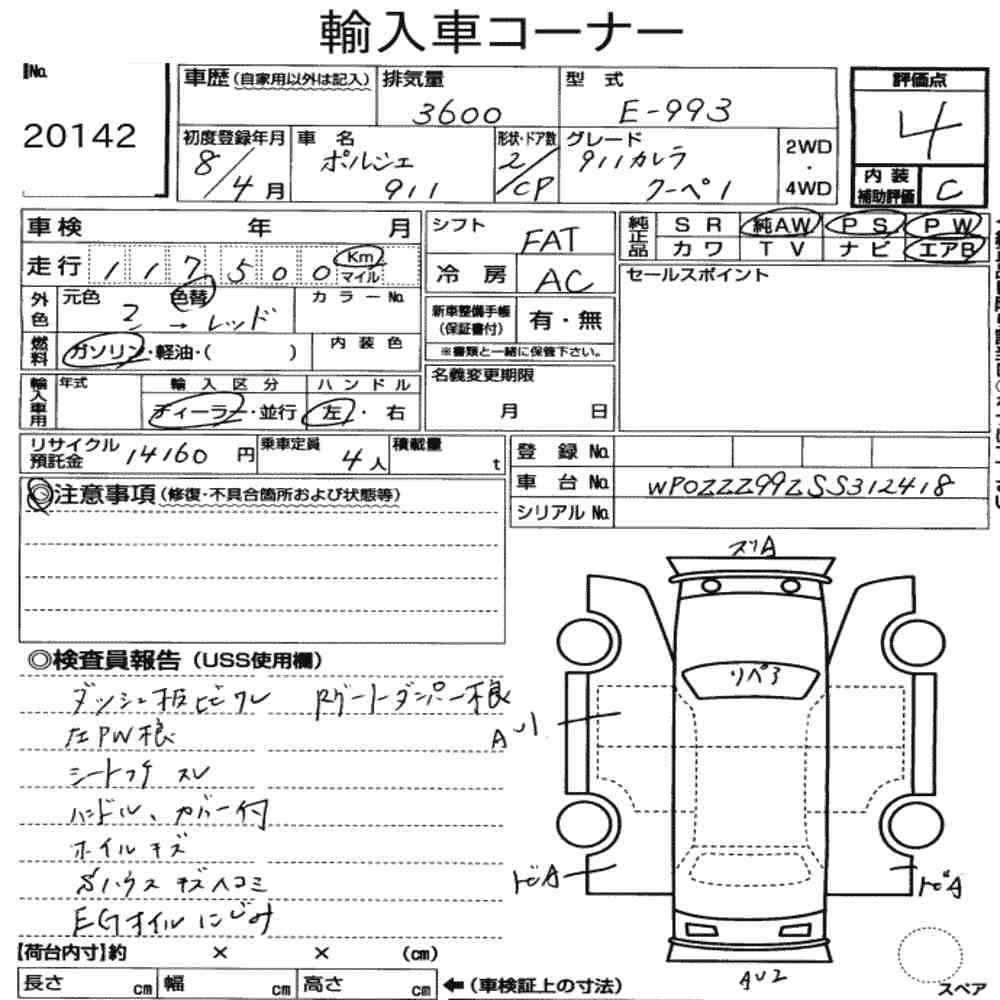 輸入車コーナー
No. 20142
車歴(自家用以外は記入)
排気量 3600
型 式 E-993
評価点 4
初度登録年月 8/4月
車 名 ポルシェ 911
形状・ドア数 2/CP
グレード 911カレラ クーペ
2WD・4WD
内装補助評価 C
車検 年 月
シフト FAT
純正品 SR 純AW PS PW
カワ TV ナビ エアB
走行 117500 Km マイル
冷 房 AC
セールスポイント
外色 元色 色替 カラーNo.
→ レッド
新車整備手帳(保証書付) 有・無
※書類と一緒に保管下さい。
燃料 ガソリン・軽油・( ) 内装色
名義変更期限 月 日
輸入車用 年式 輸入区分 ハンドル
ディーラー・並行 左・右
リサイクル預託金 14160円
乗車定員 4人
積載量 t
登 録 No.
車 台 No. WP0ZZZ99ZSS312418
シリアル No.
◎注意事項(修復・不具合箇所および状態等)
◎検査員報告(USS使用欄)
ダッシュ板ヒビワレ Rゲートダンパー不良
左PW不良
シートコゲ スレ
ハンドル、カバー付
ホイルキズ
Sハウスキズヘコミ
EGオイルにじみ
【荷台内寸】約 × × (cm)
長さ cm 幅 cm 高さ cm
←(車検証上の寸法)
スリA
リペ3
A
トビA
トビA
AU2
スペア